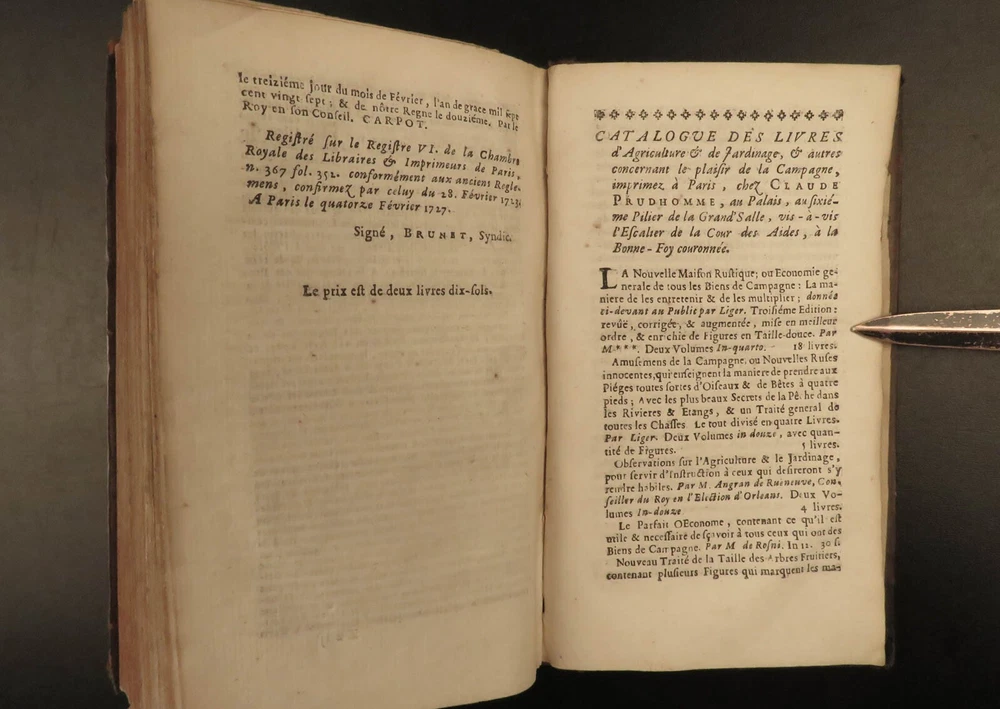 le treiziéme jour du mois de Février, l'an de grace mil sept
cent vingt sept; & de nôtre Regne le douziéme. Par le
Roy en son Conseil. CARPOT.
Registré sur le Registre VI. de la Chambre
Royale des Libraires & Imprimeurs de Paris,
n. 367 fol. 352. conformément aux anciens Regle-
mens, confirmez par celuy du 28. Février 1723.
A Paris le quatorze Février 1727.
Signé, BRUNET, Syndic.
Le prix est de deux livres dix-sols.
CATALOGVE DES LIVRES
d'Agriculture & de Jardinage, & autres
concernant le plaisir de la Campagne,
imprimez à Paris, chez CLAUDE
PRUDHOMME, au Palais, au sixié-
me Pilier de la Grand'Salle, vis-à-vis
l'Escalier de la Cour des Aides, à la
Bonne-Foy couronnée.
LA Nouvelle Maison Rustique; ou Economie ge-
nerale de tous les Biens de Campagne: La ma-
niere de les entretenir & de les multiplier; donnée
ci-devant au Public par Liger. Troisiéme Edition:
revûë, corrigée, & augmentée, mise en meilleur
ordre, & enrichie de Figures en Taille-douce. Par
M***. Deux Volumes In-quarto. 18 livres.
Amusemens de la Campagne, ou Nouvelles Ruses
innocentes, qui enseignent la maniere de prendre aux
Piéges toutes sortes d'Oiseaux & de Bêtes à quatre
pieds; Avec les plus beaux Secrets de la Pêche dans
les Rivieres & Etangs, & un Traité general de
toutes les Chasses. Le tout divisé en quatre Livres.
Par Liger. Deux Volumes in douze, avec quan-
tité de Figures. 5 livres.
Observations sur l'Agriculture & le Jardinage,
pour servir d'Instruction à ceux qui desireront s'y
rendre habiles. Par M. Angran de Rueneuve, Con-
seiller du Roy en l'Election d'Orleans. Deux Vo-
lumes In-douze 4 livres.
Le Parfait OEconome, contenant ce qu'il est
utile & necessaire de sçavoir à tous ceux qui ont des
Biens de Campagne. Par M de Rosni. In 12. 30 s.
Nouveau Traité de la Taille des Arbres Fruitiers,
contenant plusieurs Figures qui marquent les ma-